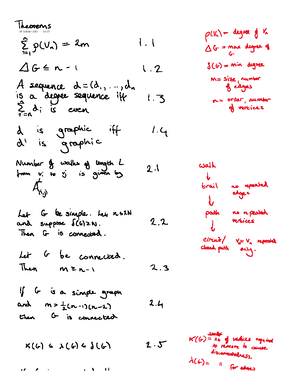 Theorems
n Σ i=1 ρ(Vₙ) = 2m 1.1
Δ G ≤ n - 1 1.2
A sequence d = (d₁, ..., dₙ)
is a degree sequence iff 1.3
Σ dᵢ is even
d is graphic iff 1.4
d' is graphic
Number of walks of length L
from vᵢ to vⱼ is given by 2.1
Let G be simple. Let
and suppose 2.2
Then G is connected.
Let G be connected.
Then m ≥ n - 1 2.3
If G is a simple graph
and m > ½(n-1)(n-2) 2.4
then G is connected
κ(G) ≤ λ(G) ≤ δ(G) 2.5
ρ(Vₙ) = degree of Vₙ
Δ G = max degree of
G
δ(G) = min degree
m = size, number
of edges
n = order, number
of vertices
walk
↓
trail no repeated
edges
↓
path no repeated
vertices
↓
circuit/ repeated
closed path only.
κ(G) = no of vertices required
to remove to cause
disconnectedness.
λ(G) = " for edges